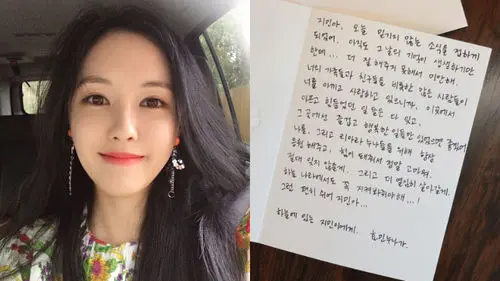 지민아, 오늘 믿기지 않는 소식을 접하게
되었어. 아직도 그날의 기억이 생생하기만
한데... 더 잘해주지 못해서 미안해.
너의 가족들과 친구들을 비롯한 많은 사람들이
너를 아끼고 사랑하고 있으니까, 이곳에서
아프고 힘들었던 일들은 다 잊고,
그곳에선 즐겁고 행복한 일들만 있었으면 좋겠어
나를, 그리고 티아라 누나들을 위해 항상
응원해주고, 힘이 돼줘서 정말 고마워.
절대 잊지 않을게. 그리고 더 열심히 살아갈게.
하늘나라에서도 꼭 지켜봐줘야해...!
그럼 편히 쉬어 지민아...
하늘에 있는 지민이에게.. 효민누나가.